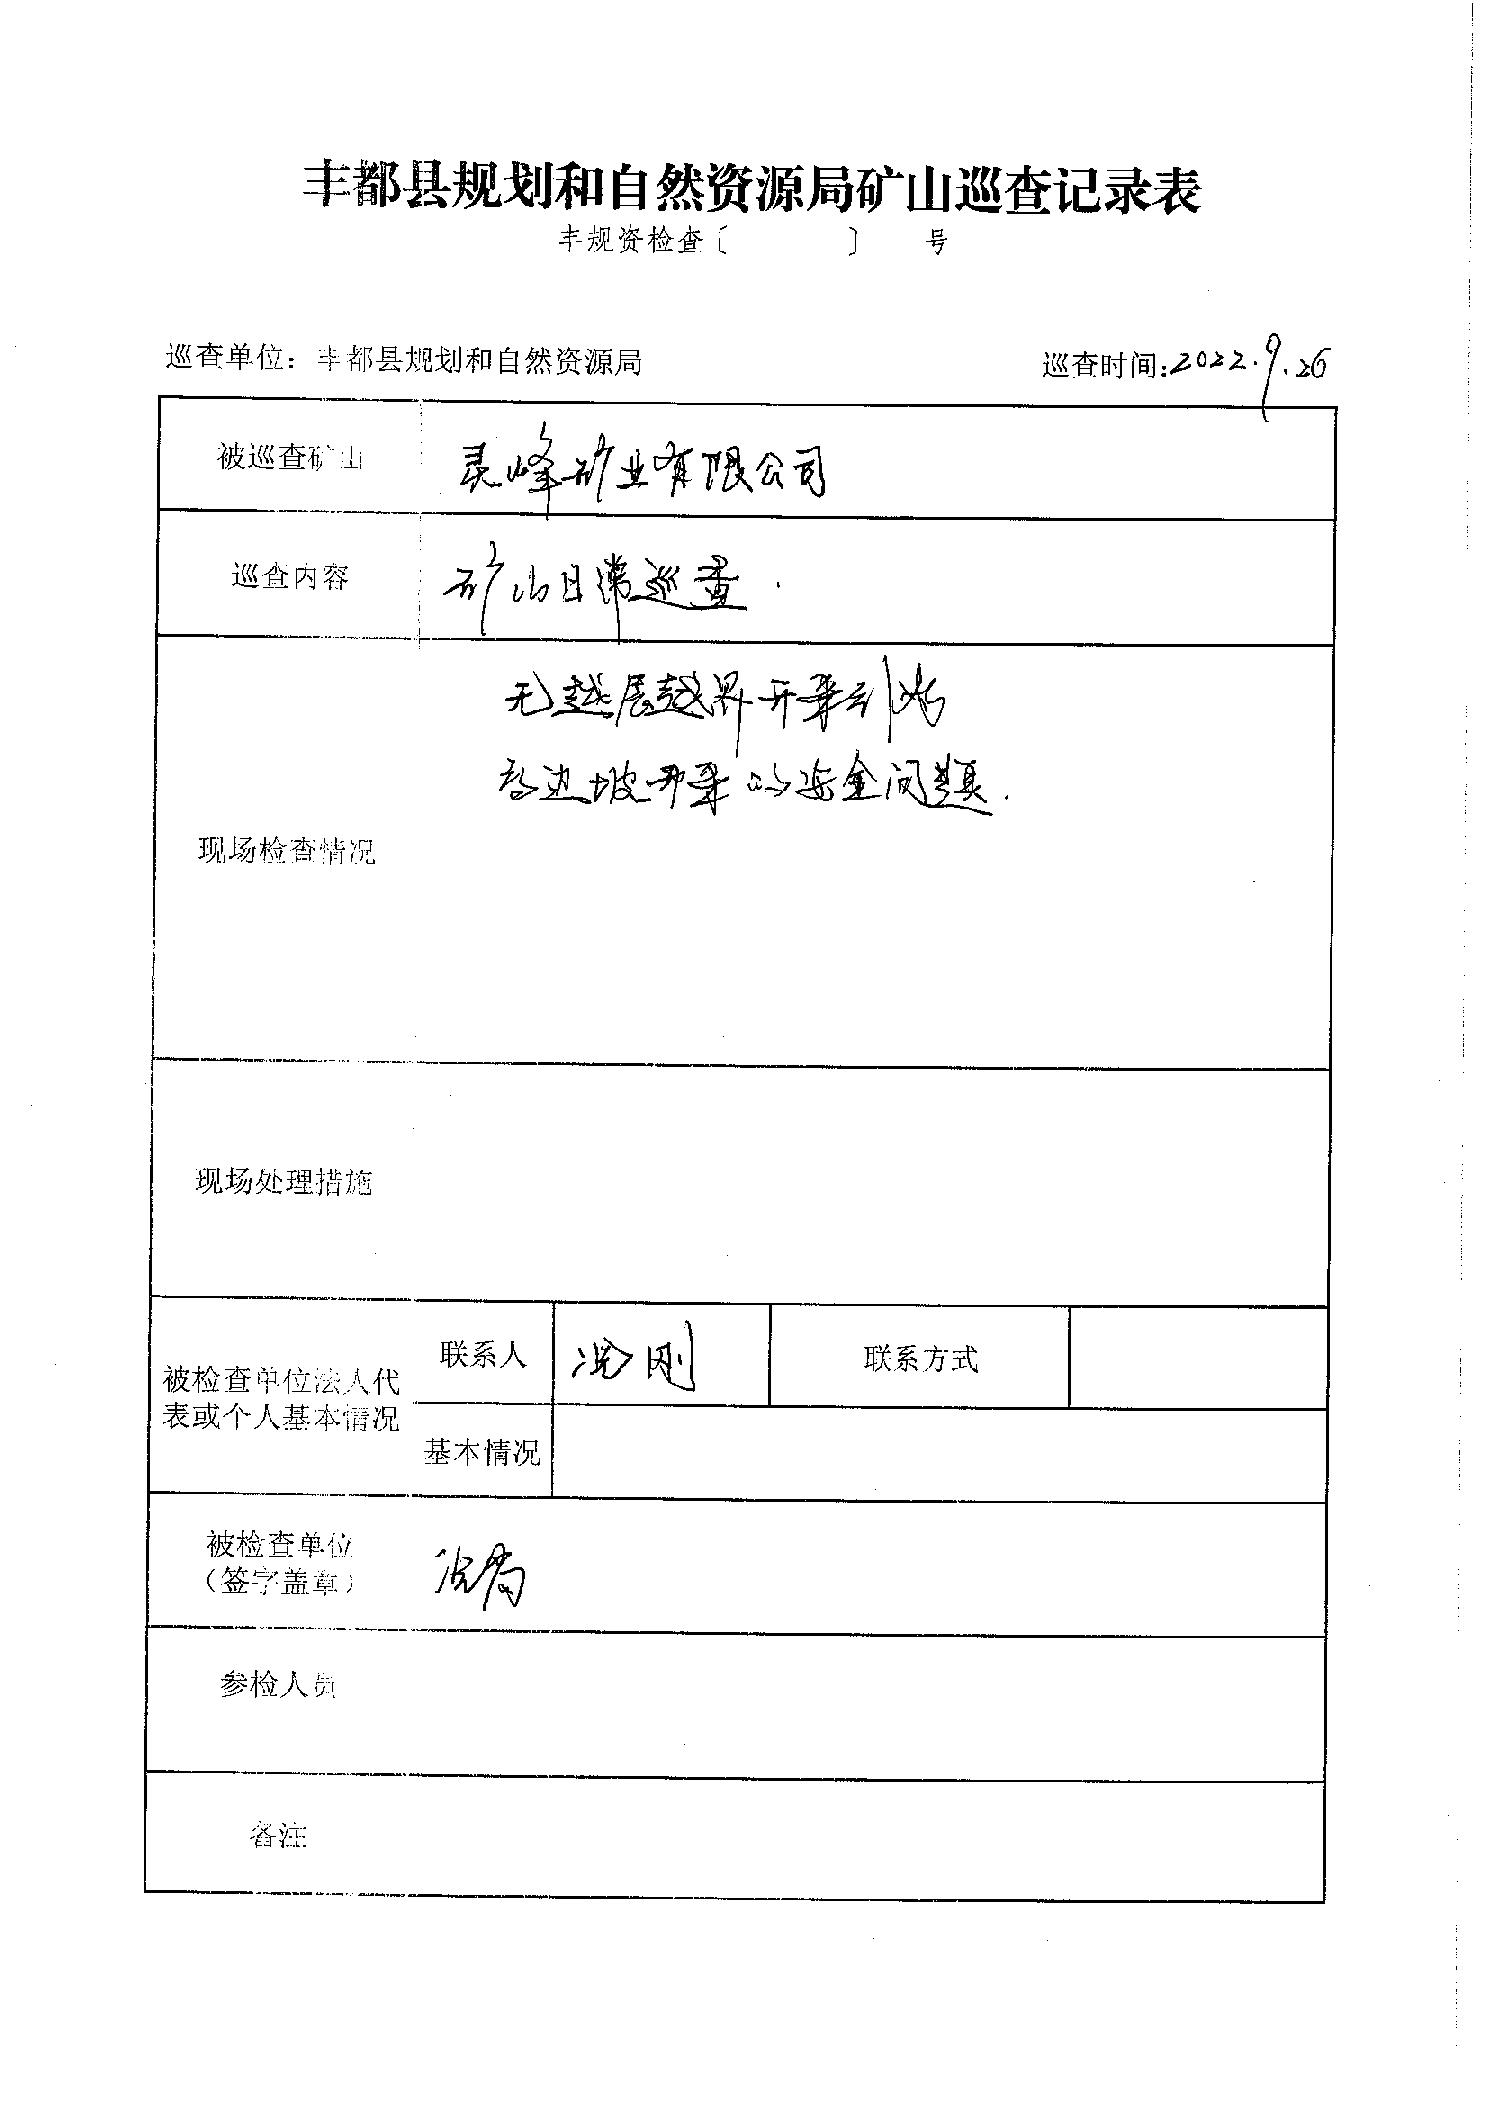 丰都县规划和自然资源局矿山巡查记录表
丰规资检查〔 〕 号
巡查单位：丰都县规划和自然资源局 巡查时间:2022.9.26
被巡查矿山 灵峰矿业有限公司
巡查内容 矿山日常巡查.
无越层越界开采
边坡开采的安全问题.
现场检查情况
现场处理措施
联系人 况刚 联系方式
被检查单位法人代
表或个人基本情况
基本情况
被检查单位
（签字盖章） 况
参检人员
备注